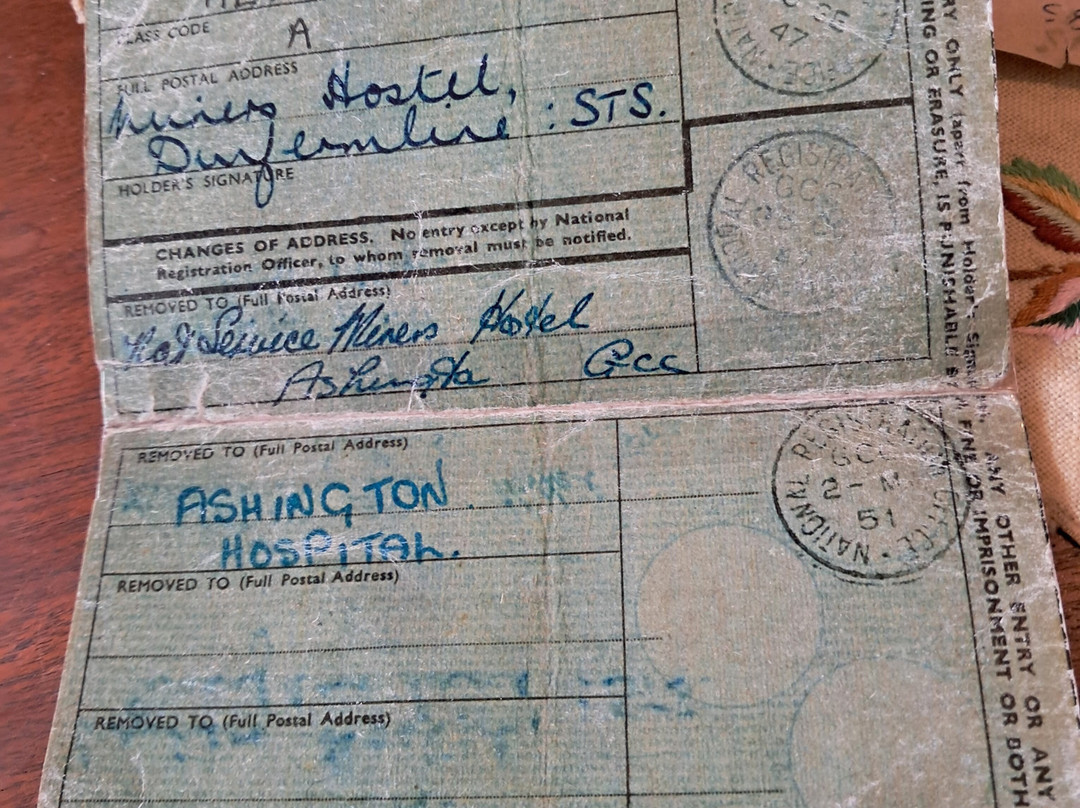 CLASS CODE
A
FULL POSTAL ADDRESS
Miners Hostel,
Dunfermline : STS.
HOLDER'S SIGNATURE
CHANGES OF ADDRESS. No entry except by National
Registration Officer, to whom removal must be notified.
REMOVED TO (Full Postal Address)
Nat Service Miners Hostel
Gcc
REMOVED TO (Full Postal Address)
ASHINGTON
HOSPITAL.
REMOVED TO (Full Postal Address)
REMOVED TO (Full Postal Address)
47
REGISTRA
GCC
NATIONAL REGISTRATION OFFICE
GCC
2-
51
RY ONLY (apart from Holder's
ING OR ERASURE, IS PUNISHABLE BY A FINE OR IMPRISONMENT OR BOTH
ANY OTHER ENTRY OR ANY